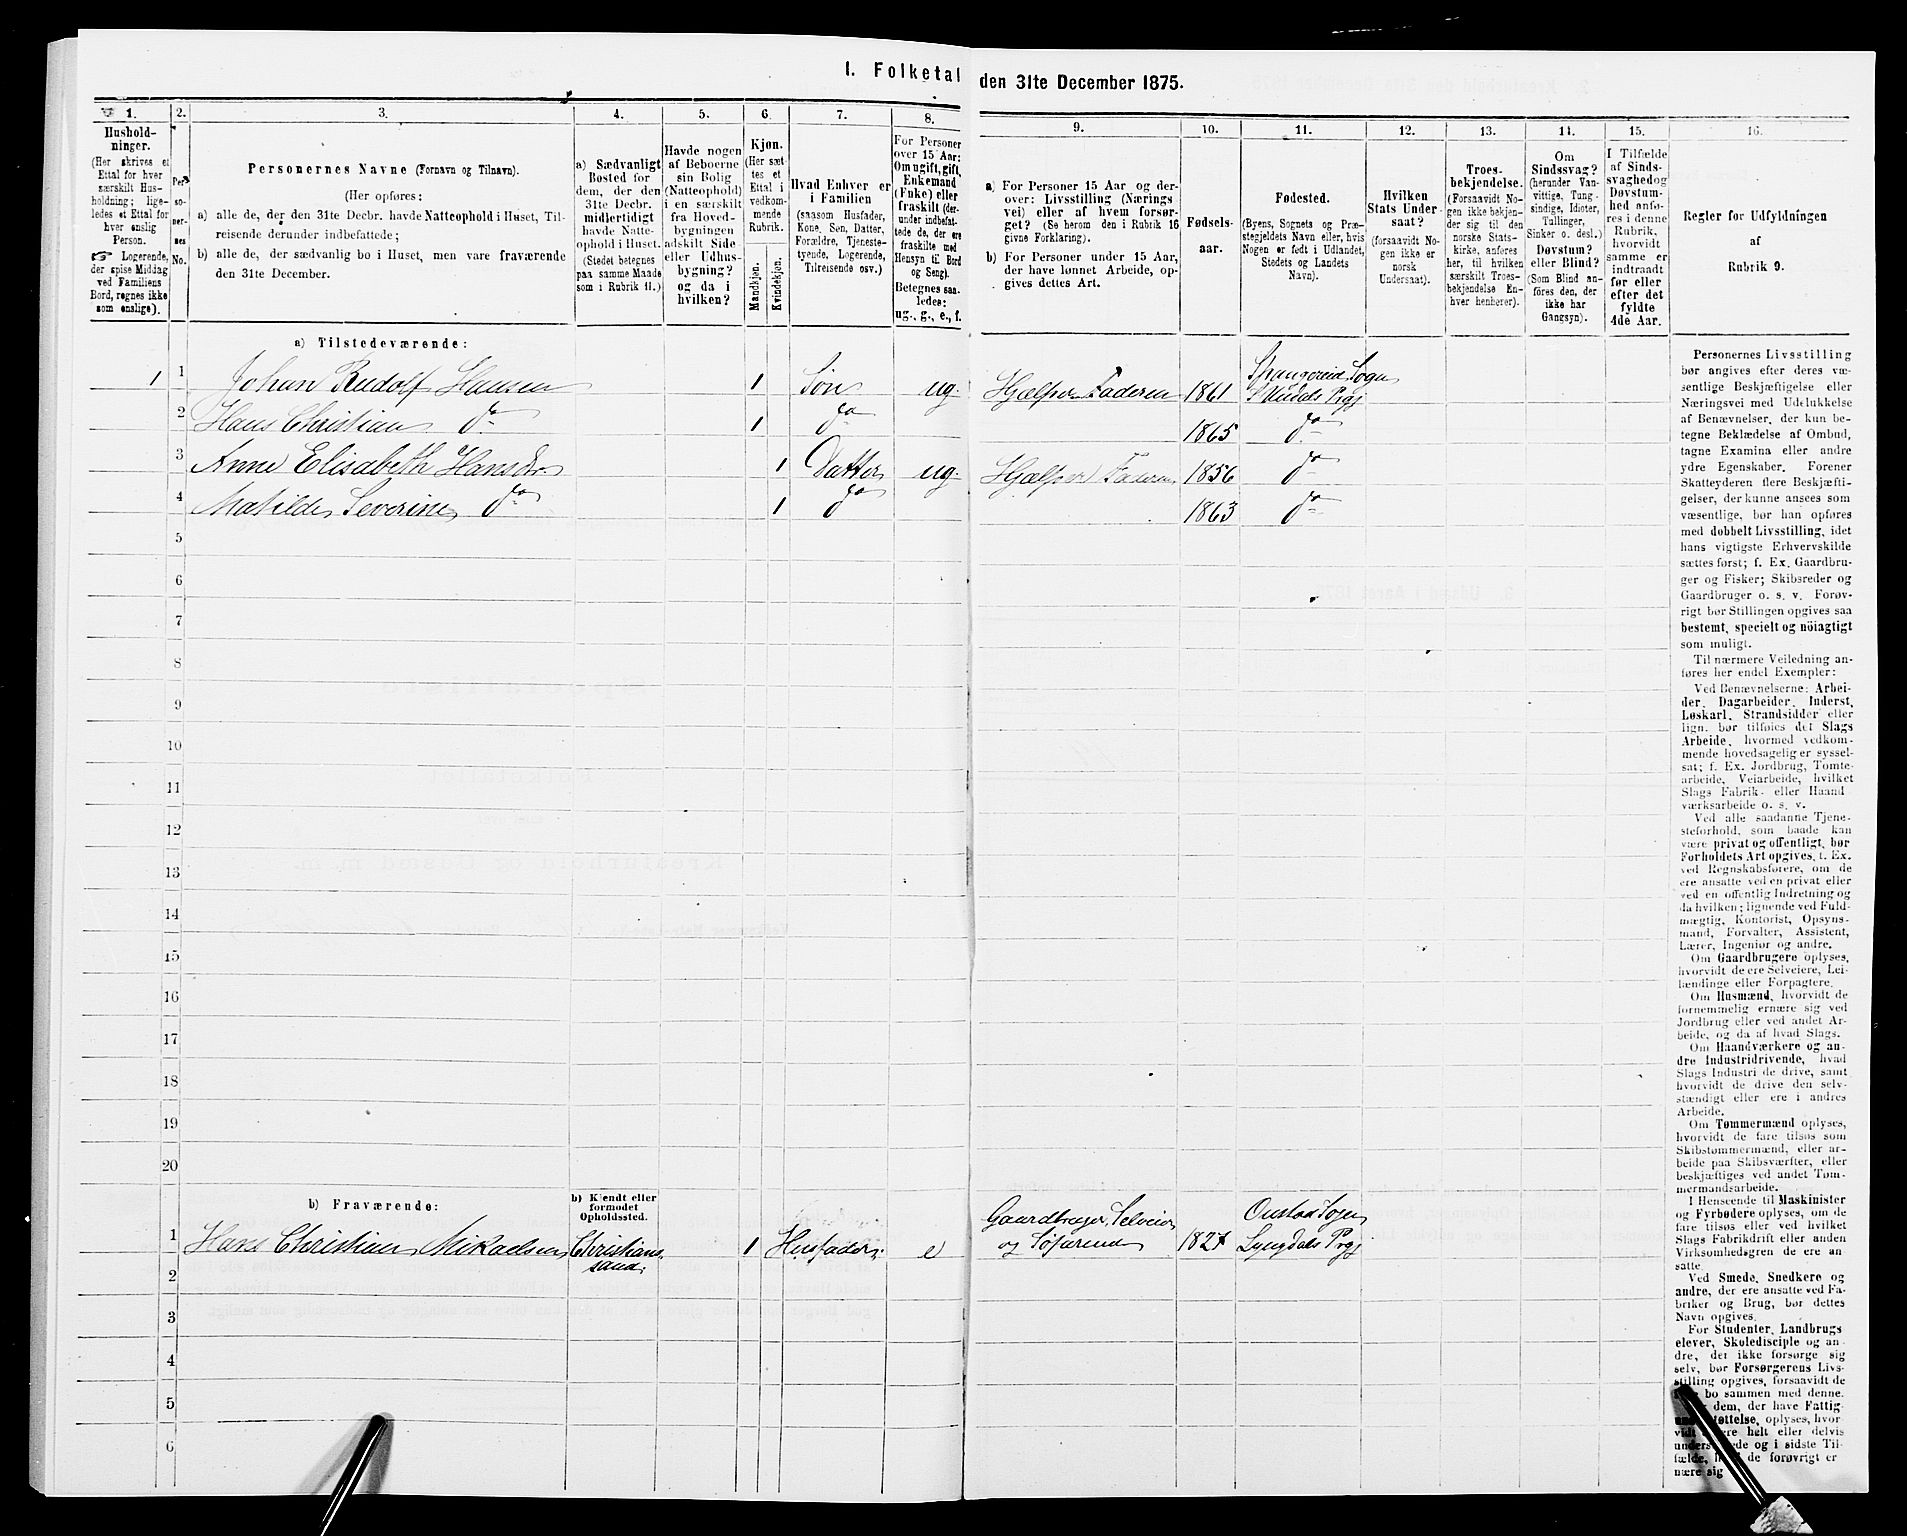 I. Folketal den 31te December 1875.
1. 2. 3. 4. 5. 6. 7. 8. 9. 10. 11. 12. 13. 14. 15. 16.
Hushold-
ninger.
(Her skrives et
Ettal for hver
særskilt Hus-
holdning; lige-
ledes et Ettal for
hver enslig
Person.
☞ Logerende,
der spise Middag
ved Familiens
Bord, regnes ikke
som enslige).
Per-
so-
ner-
nes
No.
Personernes Navne (Fornavn og Tilnavn).
(Her opføres:
a) alle de, der den 31te Decbr. havde Natteophold i Huset, Til-
reisende derunder indbefattede;
b) alle de, der sædvanlig bo i Huset, men vare fraværende
den 31te December.
a) Sædvanligt
Bosted for
dem, der den
31te Decbr.
midlertidigt
havde Natte-
ophold i Huset.
(Stedet betegnes
paa samme Maade
som i Rubrik 11.)
Havde nogen
af Beboerne
sin Bolig
(Natteophold)
i en særskilt
fra Hoved-
bygningen
adskilt Side-
eller Udhus-
bygning?
og da i
hvilken?
Kjøn.
(Her sæt-
tes et
Ettal i
vedkom-
mende
Rubrik.
Mandkjøn.
Kvindekjøn.
Hvad Enhver er
i Familien
(saasom Husfader,
Kone, Søn, Datter,
Forældre, Tjeneste-
tyende, Logerende,
Tilreisende osv.)
For Personer
over 15 Aar:
Om ugift, gift,
Enkemand
(Enke) eller
fraskilt (der-
under indbefat-
tede de, der ere
fraskilte med
Hensyn til Bord
og Seng).
Betegnes saa-
ledes:
ug., g., e., f.
a) For Personer 15 Aar og der-
over: Livsstilling (Nærings
vei) eller af hvem forsør-
get? (Se herom den i Rubrik 16
givne Forklaring).
b) For Personer under 15 Aar,
der have lønnet Arbeide, op-
gives dettes Art.
Fødsels-
aar.
Fødested.
(Byens, Sognets og Præ-
stegjeldets Navn eller, hvis
Nogen er født i Udlandet,
Stedets og Landets
Navn).
Hvilken
Stats Under-
saat?
(forsaavidt No-
gen ikke er
norsk
Undersaat).
Troes-
bekjendelse.
(Forsaavidt No-
gen ikke bekjen-
der sig til den
norske Stats-
kirke, anføres
her, til hvilken
særskilt Troes-
bekjendelse En-
hver henhører).
Om
Sindssvag?
(herunder Van-
vittige, Tung-
sindige, Idioter,
Tullinger,
Sinker o. desl.)
Døvstum?
eller Blind?
(Som Blind an-
føres den, der
ikke har
Gangsyn).
I Tilfælde
af Sinds-
svaghed og
Døvstum-
hed anfø-
res i denne
Rubrik,
hvorvidt
samme er
indtraadt
før eller
efter det
fyldte
4de Aar.
Regler for Udfyldningen
af
Rubrik 9.
a) Tilstedeværende:
1 1 Johan Rudolf Hansen 1 Søn ug. Hjælper Faderen 1861 Spangereid Sogn
Undals Prgj
2 Hans Christian do 1 do 1865 do
3 Anne Elisabeth Hansdr 1 Datter ug. Hjælper Faderen 1856 do
4 Matilde Severine do 1 do 1863 do
5
6
7
8
9
10
11
12
13
14
15
16
17
18
19
20
b) Fraværende:
b) Kjendt eller
formodet
Opholdssted.
1 Hans Christian Mikaelsen Christians
sand. 1 Husfader. e Gaardbruger, Selveier
og Søfarende 1827 Austad Sogn
Lyngdals Prgj
2
3
4
5
6
Personernes Livsstilling
bør angives efter deres væ-
sentlige Beskjæftigelse eller
Næringsvei med Udelukkelse
af Benævnelser, der kun be-
tegne Beklædelse af Ombud,
tagne Examina eller andre
ydre Egenskaber. Forener
Skatteyderen flere Beskjæfti-
gelser, der kunne ansees som
væsentlige, bør han opføres
med dobbelt Livsstilling, idet
hans vigtigste Erhvervskilde
sættes først; f. Ex. Gaardbru-
ger og Fisker; Skibsreder og
Gaardbruger o. s. v. Forøv-
rigt bør Stillingen opgives saa
bestemt, specielt og nöiagtigt
som muligt.
Til nærmere Veiledning an-
føres her endel Exempler:
Ved Benævnelserne: Arbei-
der, Dagarbeider, Inderst,
Løskarl, Strandsidder eller
lign. bør tilføies det Slags
Arbeide, hvormed vedkom-
mende hovedsagelig er syssel-
sat; f. Ex. Jordbrug, Tomte-
arbeide, Veiarbeide, hvilket
Slags Fabrik- eller Haand-
værksarbeide o. s. v.
Ved alle saadanne Tjene-
steforhold, som baade kan
være privat og offentligt, bør
Forholdets Art opgives, f. Ex.
ved Regnskabsførere, om de
ere ansatte ved en privat eller
ved en offentlig Indretning og
da hvilken; lignende ved Fuld-
mægtig, Kontorist, Opsyns-
mand, Forvalter, Assistent,
Lærer, Ingeniør og andre.
Om Gaardbrugere oplyses,
hvorvidt de ere Selveiere, Lei-
lændinge eller Forpagtere.
Om Husmænd, hvorvidt de
fornemmelig ernære sig ved
Jordbrug eller ved andet Ar-
beide, og da af hvad Slags.
Om Haandværkere og an-
dre Industridrivende, hvad
Slags Industri de drive, samt
hvorvidt de drive den selv-
stændigt eller ere i andres
Arbeide.
Om Tømmermænd oplyses,
hvorvidt de fare tilsøs som
Skibstømmermænd, eller ar-
beide paa Skibsværfter, eller
beskjæftiges ved andet Tøm-
mermandsarbeide.
I Henseende til Maskinister
og Fyrbødere oplyses, om de
fare tilsøs eller ved hvilket
Slags Fabrikdrift eller anden
Virksomhedsgren de ere an-
satte.
Ved Smede, Snedkere og
andre, der ere ansatte ved Fa-
briker og Brug, bør dettes
Navn opgives.
For Studenter, Landbrugs
elever, Skoledisciple og an-
dre, der ikke forsørge sig
selv, bør Forsørgerens Livs-
stilling opgives, forsaavidt de
bo sammen med denne.
dem, der have Fattig-
oplyses, hvor-
vidt helt eller delvis
og i sidste Til-
fælde, de forøvrigt er
nære sig